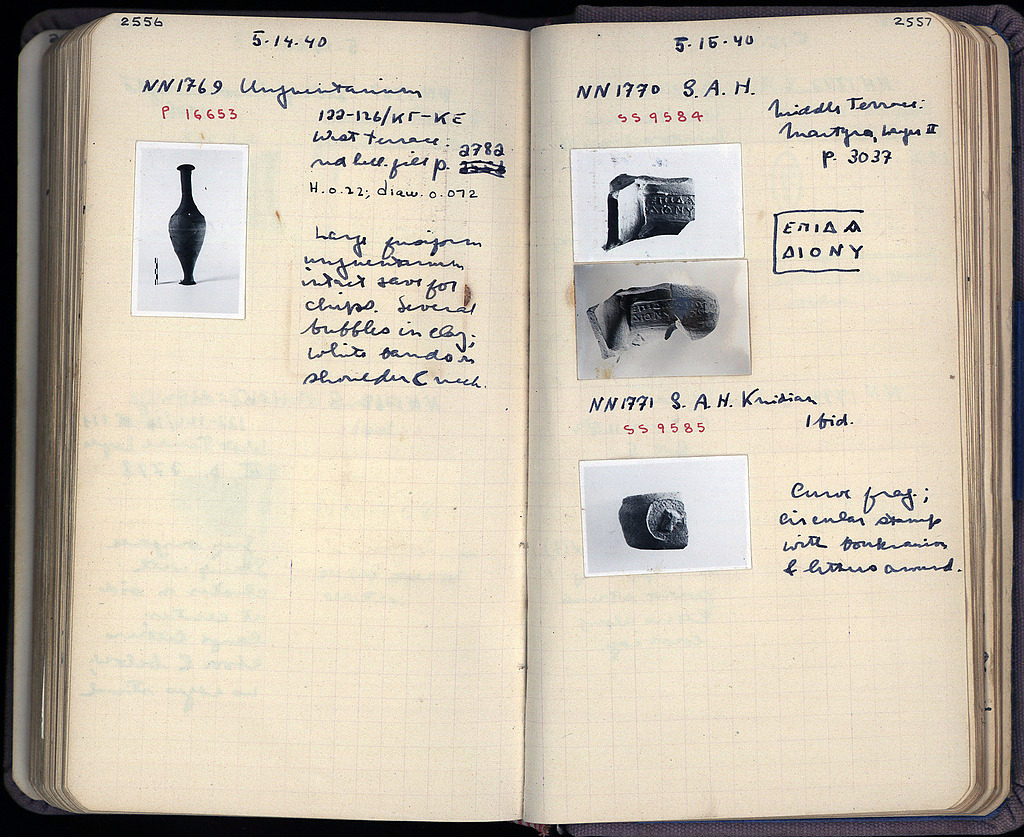 2556
5·14·40
NN1769 Unguentarium
P 16653
122-126/ΚΓ-ΚΕ
West Terrace:
nd hell. fill p. 2782
H. 0.22; diam. 0.072
Large fusiform
unguentarium
intact save for
chips. Several
bubbles in clay;
white bands on
shoulder & neck.
2557
5·15·40
NN1770 S. A. H.
SS 9584
Middle Terrace:
Martyra, Layer II
p. 3037
ΕΠΙΔΑ
ΔΙΟΝΥ
NN1771 S. A. H. Knidian
SS 9585
Ibid.
Curve frag.;
circular stamp
with boukranion
& letters around.